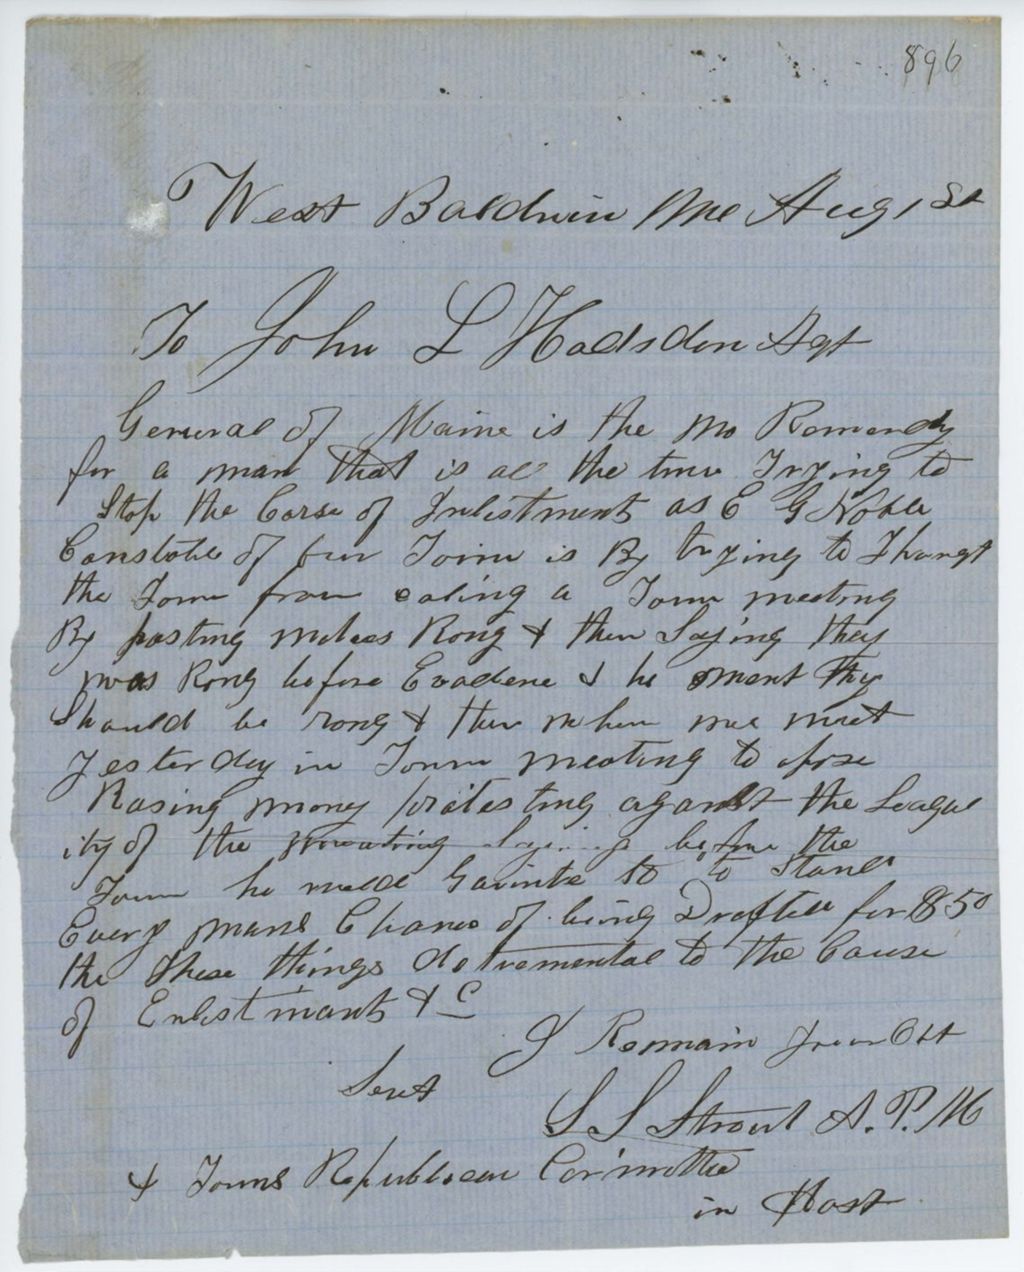 896
West Baldwin Me Aug 1 st
To John L Hodsdon Agt
General of Maine is the no Remendy
for a man that is all the time Trying to
Stop the Corse of Inlistments as E G Noble
Constable of our Town is By trying to
the Town from caling a Town meeting
By posting notices Rong & then Saying they
was Rong before Evadene & he ment they
Should be rong & then when we met
yesterday in Town meeting to
Rasing money protesting aganst the Leagal
ity of the meeting before the
Town he to to Stand
Every mans Chance of being Drafted for $50
the these things detremental to the Cause
of Enlistments & C
I Remain your Obt
Servt
S S Strout A. P. M
& Towns Republican Committee
in Hast